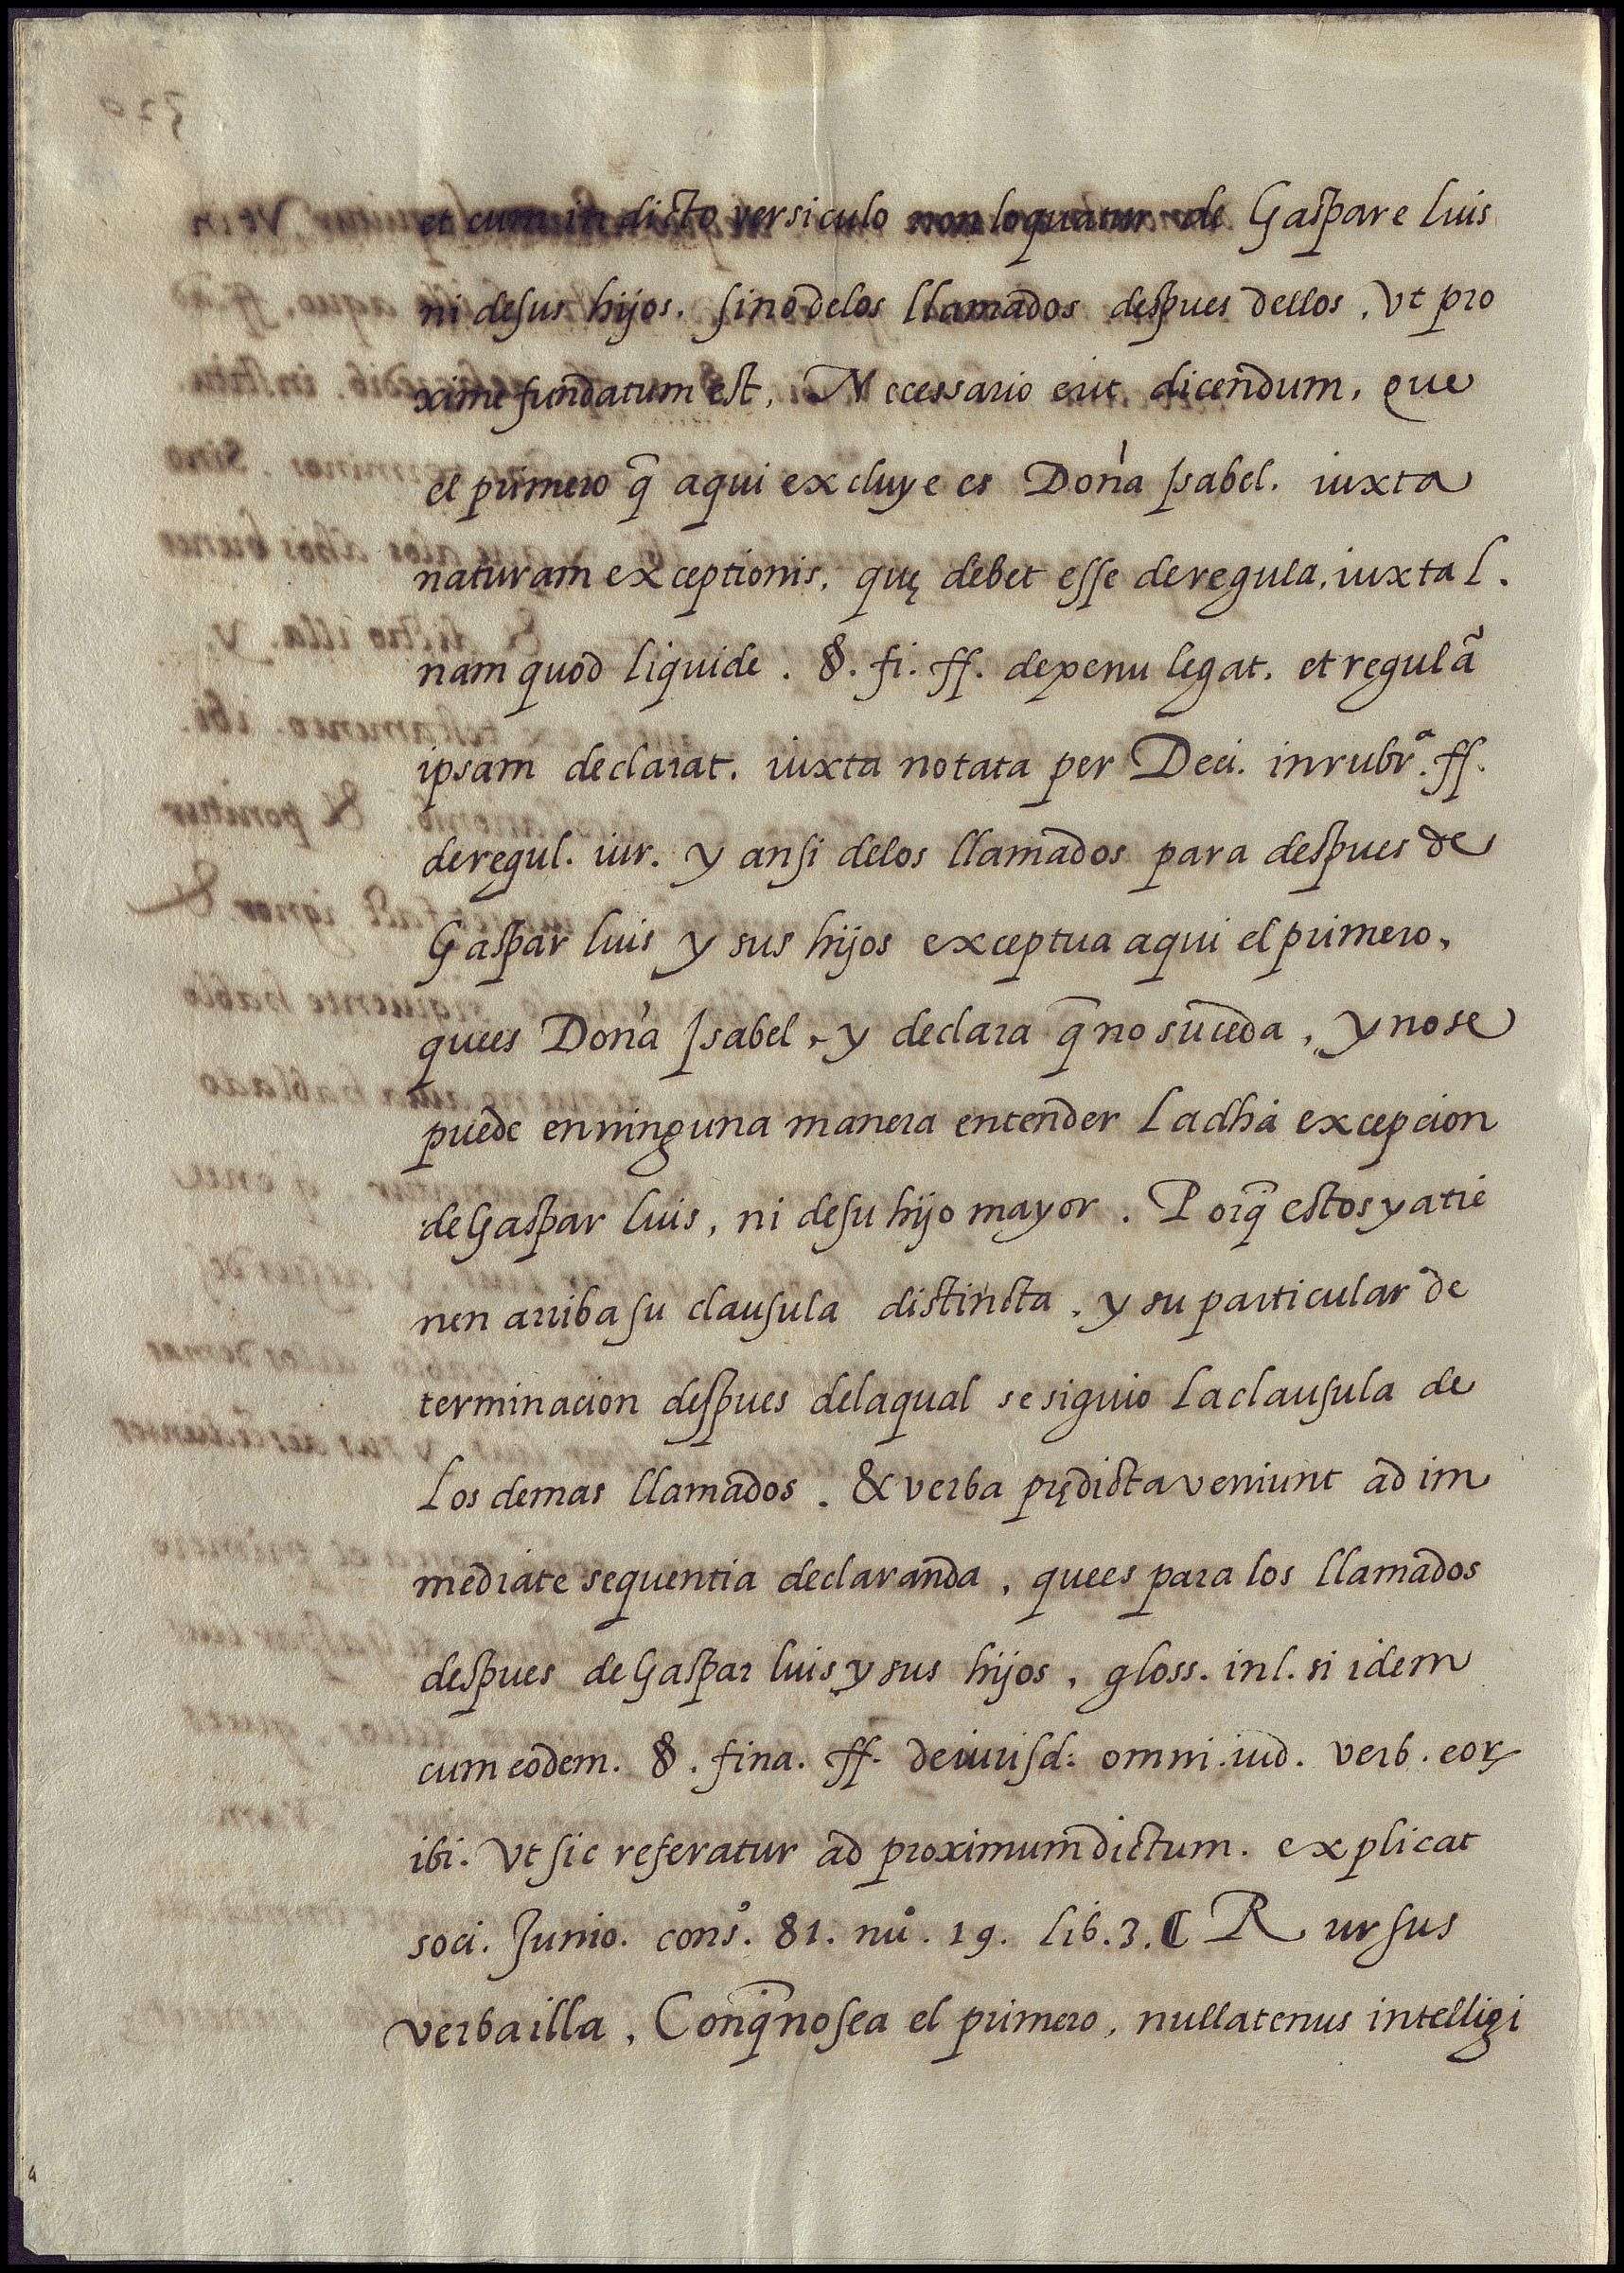 et cum in dicto versiculo non loquatur de Gaspare luis
ni de sus hijos. sino de los llamados despues dellos, Vt pro
xime fundatum est, Necessario erit dicendum, que
el primero q̃ aqui excluye es Dona Isabel. iuxta
naturam exceptionis, quę debet esse de regula, iuxta l.
nam quod liquide. §. fi. ff. de penu legat. et regulã
ipsam declarat. iuxta notata per Deci. in rubrª. ff.
de regul. iur. y ansi de los llamados para despues de
Gaspar luis y sus hijos exceptua aqui el primero,
que es Dona Isabel, y declara q̃ no suceda, y no se
puede en ninguna manera entender la dha excepcion
de Gaspar luis, ni de su hijo mayor. Porq̃ estos ya tie
nen arriba su clausula distincta, y su particular de
terminacion despues de la qual se siguio la clausula de
los demas llamados. & verba prędicta veniunt ad im
mediate sequentia declaranda, que es para los llamados
despues de Gaspar luis y sus hijos, gloss. in l. si idem
cum eodem. §. fina. ff. de iurisd: omni. iud. verb. eoꝝ
ibi. Vt sic referatur ad proximum dictum. explicat
soci. Junio. consº. 81. nuº. 19. lib. 3. ₵ Rursus
verba illa, Conq̃ no sea el primero, nullatenus intelligi